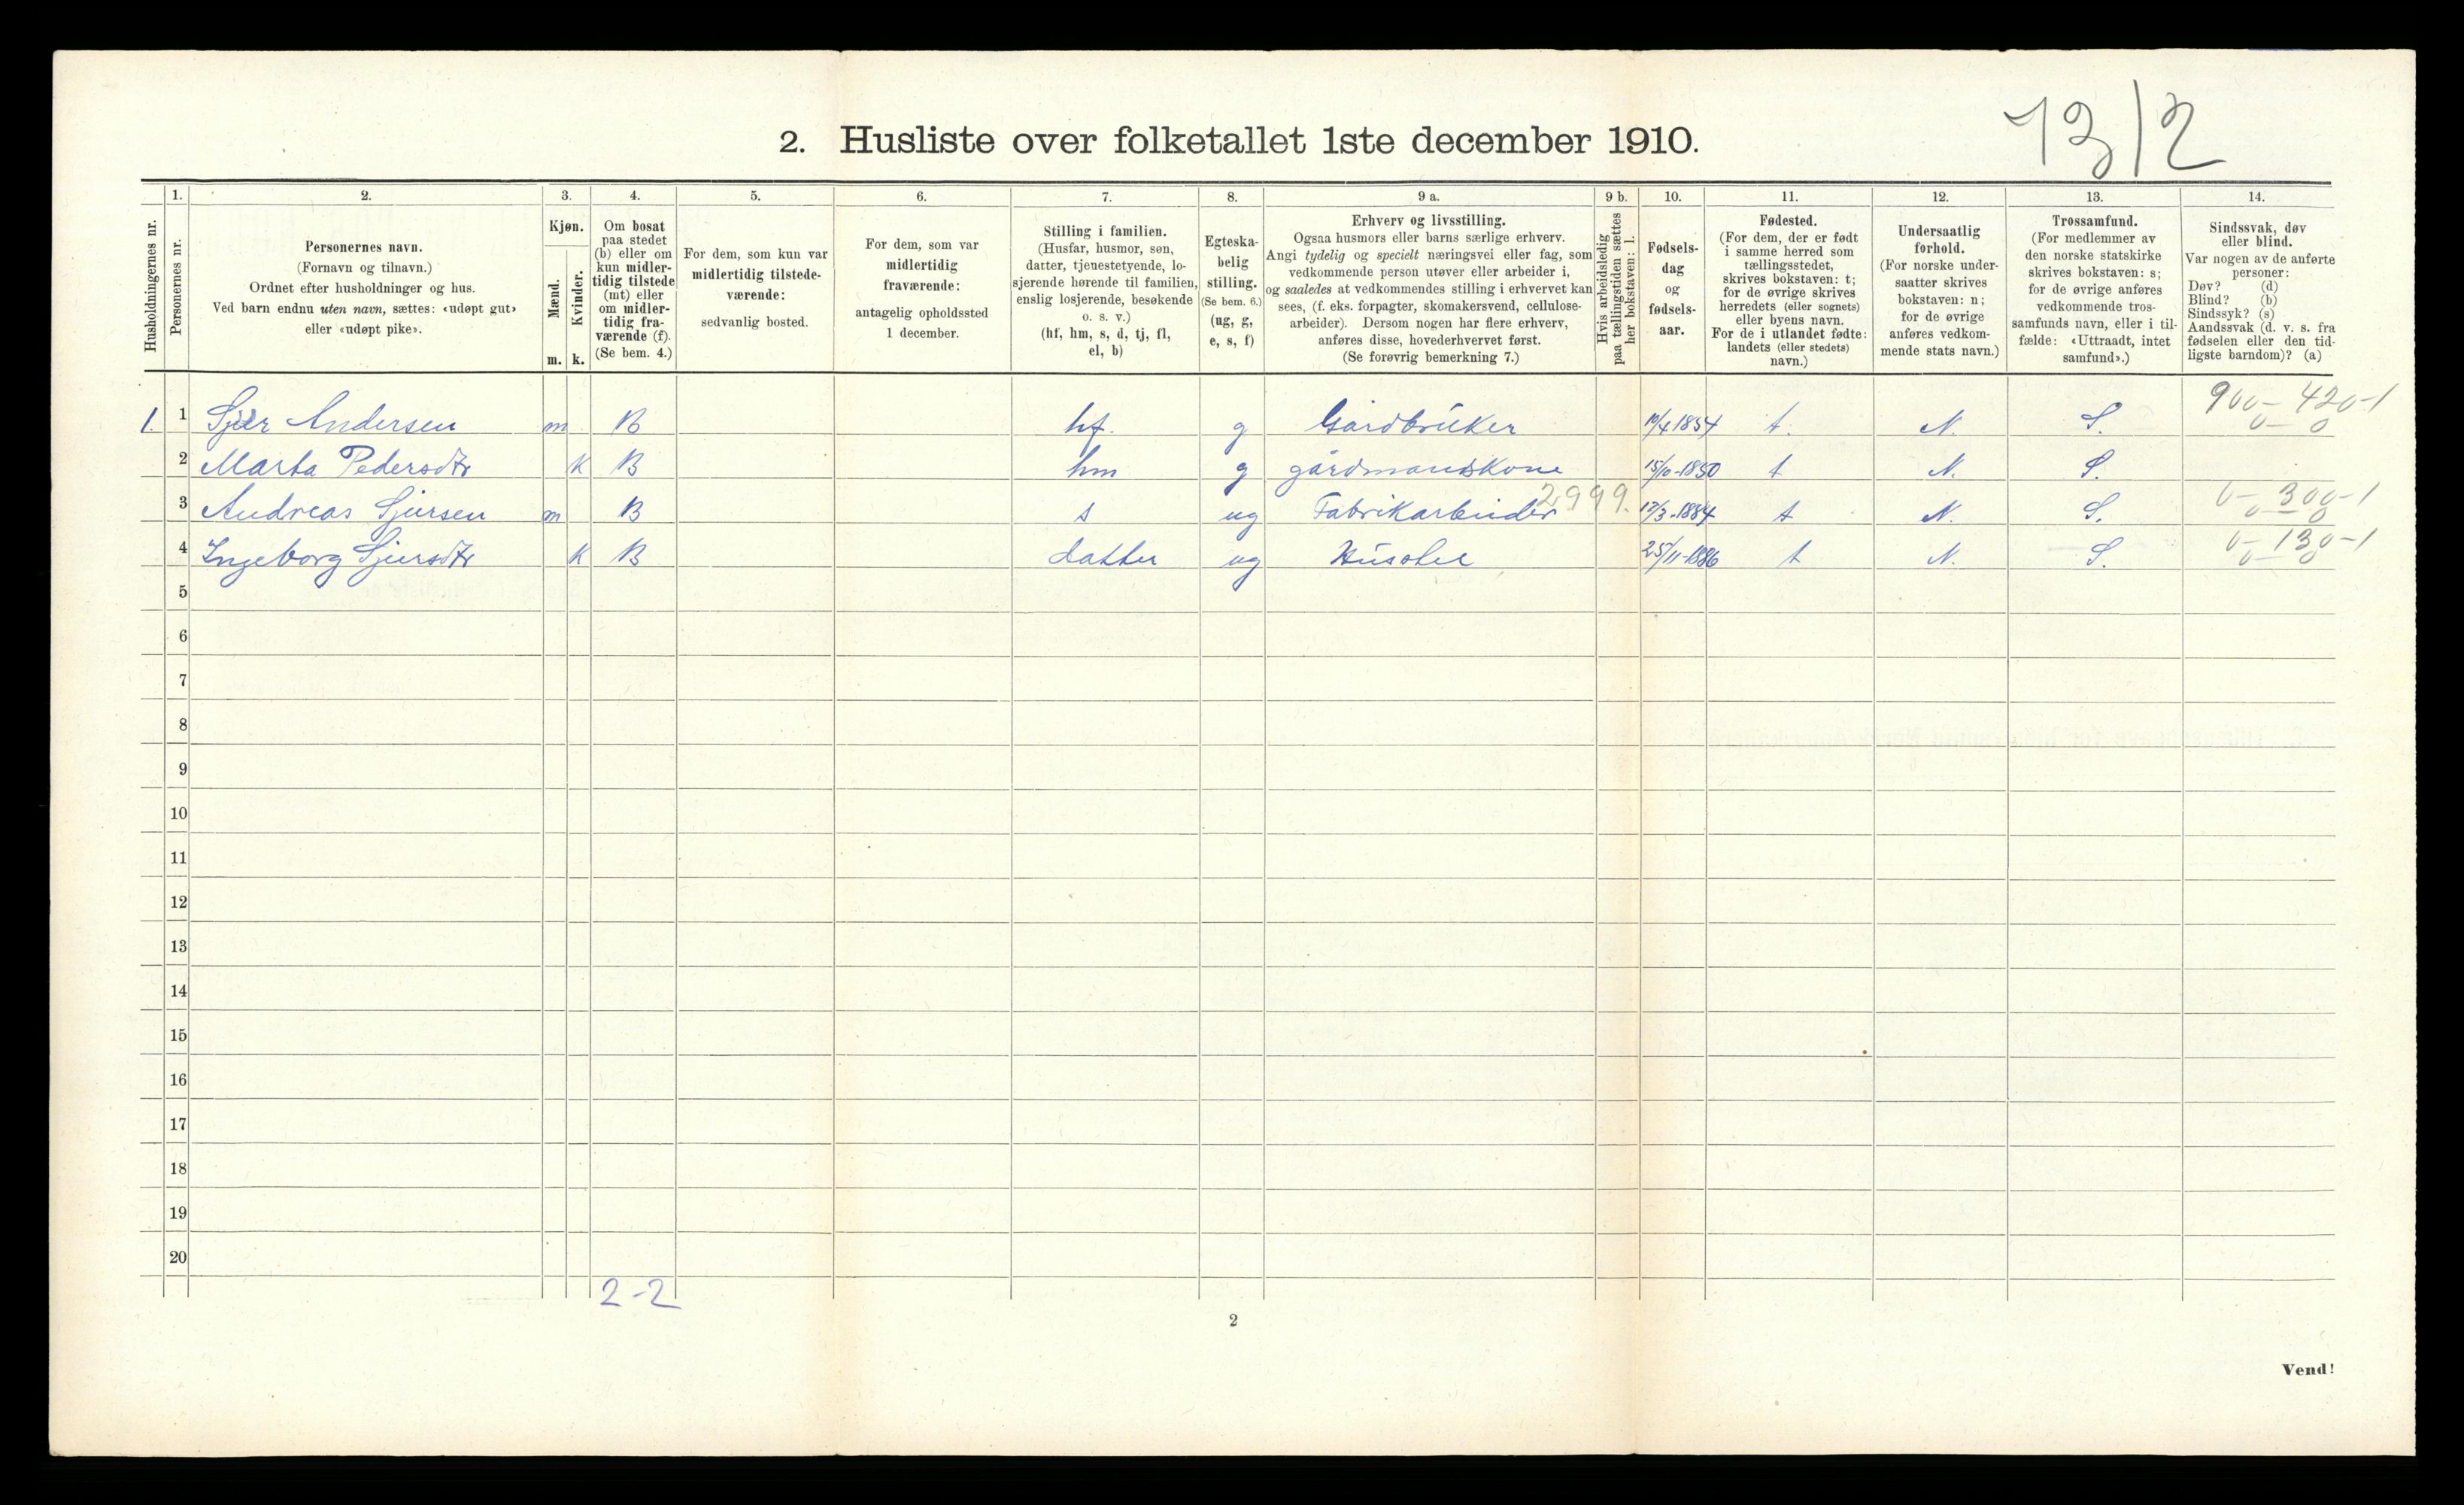 13/2
2. Husliste over folketallet 1ste december 1910.
Husholdningernes nr.
1.
Personernes nr.
2.
Personernes navn.
(Fornavn og tilnavn.)
Ordnet efter husholdninger og hus.
Ved barn endnu uten navn, sættes: «udøpt gut»
eller «udøpt pike».
3.
Kjøn.
Mænd.
m.
Kvinder.
k.
4.
Om bosat
paa stedet
(b) eller om
kun midler-
tidig tilstede
(mt) eller
om midler-
tidig fra-
værende (f).
(Se bem. 4.)
5.
For dem, som kun var
midlertidig tilstede-
værende:
sedvanlig bosted.
6.
For dem, som var
midlertidig
fraværende:
antagelig opholdssted
1 december.
7.
Stilling i familien.
(Husfar, husmor, søn,
datter, tjenestetyende, lo-
sjerende hørende til familien,
enslig losjerende, besøkende
o. s. v.)
(hf, hm, s, d, tj, fl,
el, b)
8.
Egteska-
belig
stilling.
(Se bem. 6.)
(ug, g,
e, s, f)
9 a.
Erhverv og livsstilling.
Ogsaa husmors eller barns særlige erhverv.
Angi tydelig og specielt næringsvei eller fag, som
vedkommende person utøver eller arbeider i,
og saaledes at vedkommendes stilling i erhvervet kan
sees, (f. eks. forpagter, skomakersvend, cellulose-
arbeider). Dersom nogen har flere erhverv,
anføres disse, hovederhvervet først.
(Se forøvrig bemerkning 7.)
9 b.
Hvis arbeidsledig
paa tællingstiden sættes
her bokstaven: l.
10.
Fødsels-
dag
og
fødsels-
aar.
11.
Fødested.
(For dem, der er født
i samme herred som
tællingsstedet,
skrives bokstaven: t;
for de øvrige skrives
herredets (eller sognets)
eller byens navn.
For de i utlandet fødte:
landets (eller stedets)
navn.)
12.
Undersaatlig
forhold.
(For norske under-
saatter skrives
bokstaven: n;
for de øvrige
anføres vedkom-
mende stats navn.)
13.
Trossamfund.
(For medlemmer av
den norske statskirke
skrives bokstaven: s;
for de øvrige anføres
vedkommende tros-
samfunds navn, eller i til-
fælde: «Uttraadt, intet
samfund».)
14.
Sindssvak, døv
eller blind.
Var nogen av de anførte
personer:
Døv? (d)
Blind? (b)
Sindssyk? (s)
Aandssvak (d. v. s. fra
fødselen eller den tid-
ligste barndom)? (a)
900- 420-1
1. 1 Andersen m B hf. g Gårdbrüker 10/4 1854 t. N. S. 0-0
2 Marta Pedersdtr k B hm g gårdmandskone 15/10-1850 t N. S.
2,999. 0- 300-1
3 Andreas Sjursen m B s ug Fabrikarbeider 17/3-1884 t N. S. 0-0
0- 130-1
4 Ingeborg Sjursdtr k B datter ug Hüsstel 25/11-1886 t N. S. 0-0
5
6
7
8
9
10
11
12
13
14
15
16
17
18
19
20
2-2
2
Vend!